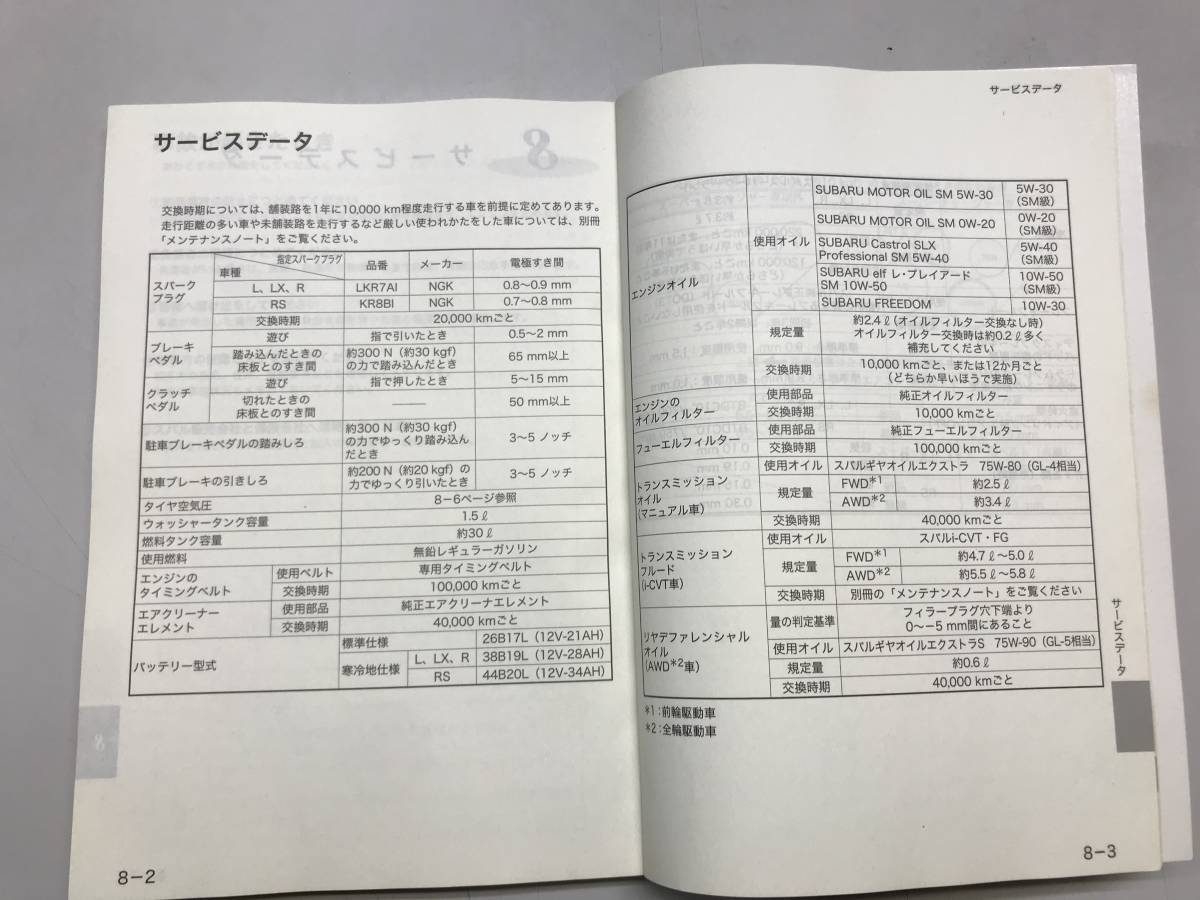 サービスデータ
交換時期については、舗装路を1年に10,000 km程度走行する車を前提に定めてあります。
走行距離の多い車や未舗装路を走行するなど厳しい使われかたをした車については、別冊
「メンテナンスノート」をご覧ください。
スパーク
プラグ
指定スパークプラグ
車種
品番 メーカー 電極すき間
L、LX、R LKR7AI NGK 0.8〜0.9 mm
RS KR8BI NGK 0.7〜0.8 mm
交換時期 20,000 kmごと
ブレーキ
ペダル
遊び 指で引いたとき 0.5〜2 mm
踏み込んだときの
床板とのすき間
約300 N（約30 kgf）
の力で踏み込んだとき
65 mm以上
クラッチ
ペダル
遊び 指で押したとき 5〜15 mm
切れたときの
床板とのすき間
―― 50 mm以上
駐車ブレーキペダルの踏みしろ
約300 N（約30 kgf）
の力でゆっくり踏み込ん
だとき
3〜5 ノッチ
駐車ブレーキの引きしろ
約200 N（約20 kgf）の
力でゆっくり引いたとき
3〜5 ノッチ
タイヤ空気圧 8−6ページ参照
ウォッシャータンク容量 1.5 ℓ
燃料タンク容量 約30 ℓ
使用燃料 無鉛レギュラーガソリン
エンジンの
タイミングベルト
使用ベルト 専用タイミングベルト
交換時期 100,000 kmごと
エアクリーナー
エレメント
使用部品 純正エアクリーナエレメント
交換時期 40,000 kmごと
バッテリー型式
標準仕様 26B17L（12V-21AH）
寒冷地仕様
L、LX、R 38B19L（12V-28AH）
RS 44B20L（12V-34AH）
8−2
サービスデータ
エンジンオイル
使用オイル
SUBARU MOTOR OIL SM 5W-30 5W-30
（SM級）
SUBARU MOTOR OIL SM 0W-20 0W-20
（SM級）
SUBARU Castrol SLX
Professional SM 5W-40
5W-40
（SM級）
SUBARU elf レ・プレイアード
SM 10W-50
10W-50
（SM級）
SUBARU FREEDOM 10W-30
規定量
約2.4 ℓ（オイルフィルター交換なし時）
オイルフィルター交換時は約0.2 ℓ多く
補充してください
交換時期
10,000 kmごと、または12か月ごと
（どちらか早いほうで実施）
エンジンの
オイルフィルター
使用部品 純正オイルフィルター
交換時期 10,000 kmごと
フューエルフィルター
使用部品 純正フューエルフィルター
交換時期 100,000 kmごと
トランスミッション
オイル
（マニュアル車）
使用オイル スバルギヤオイルエクストラ 75W-80（GL-4相当）
規定量
FWD＊1 約2.5 ℓ
AWD＊2 約3.4 ℓ
交換時期 40,000 kmごと
トランスミッション
フルード
（i-CVT車）
使用オイル スバルi-CVT・FG
規定量
FWD＊1 約4.7 ℓ〜5.0 ℓ
AWD＊2 約5.5 ℓ〜5.8 ℓ
交換時期 別冊の「メンテナンスノート」をご覧ください
リヤデファレンシャル
オイル
（AWD＊2車）
量の判定基準
フィラープラグ穴下端より
0〜−5 mm間にあること
使用オイル スバルギヤオイルエクストラS 75W-90（GL-5相当）
規定量 約0.6 ℓ
交換時期 40,000 kmごと
＊1：前輪駆動車
＊2：全輪駆動車
サービスデータ
8−3